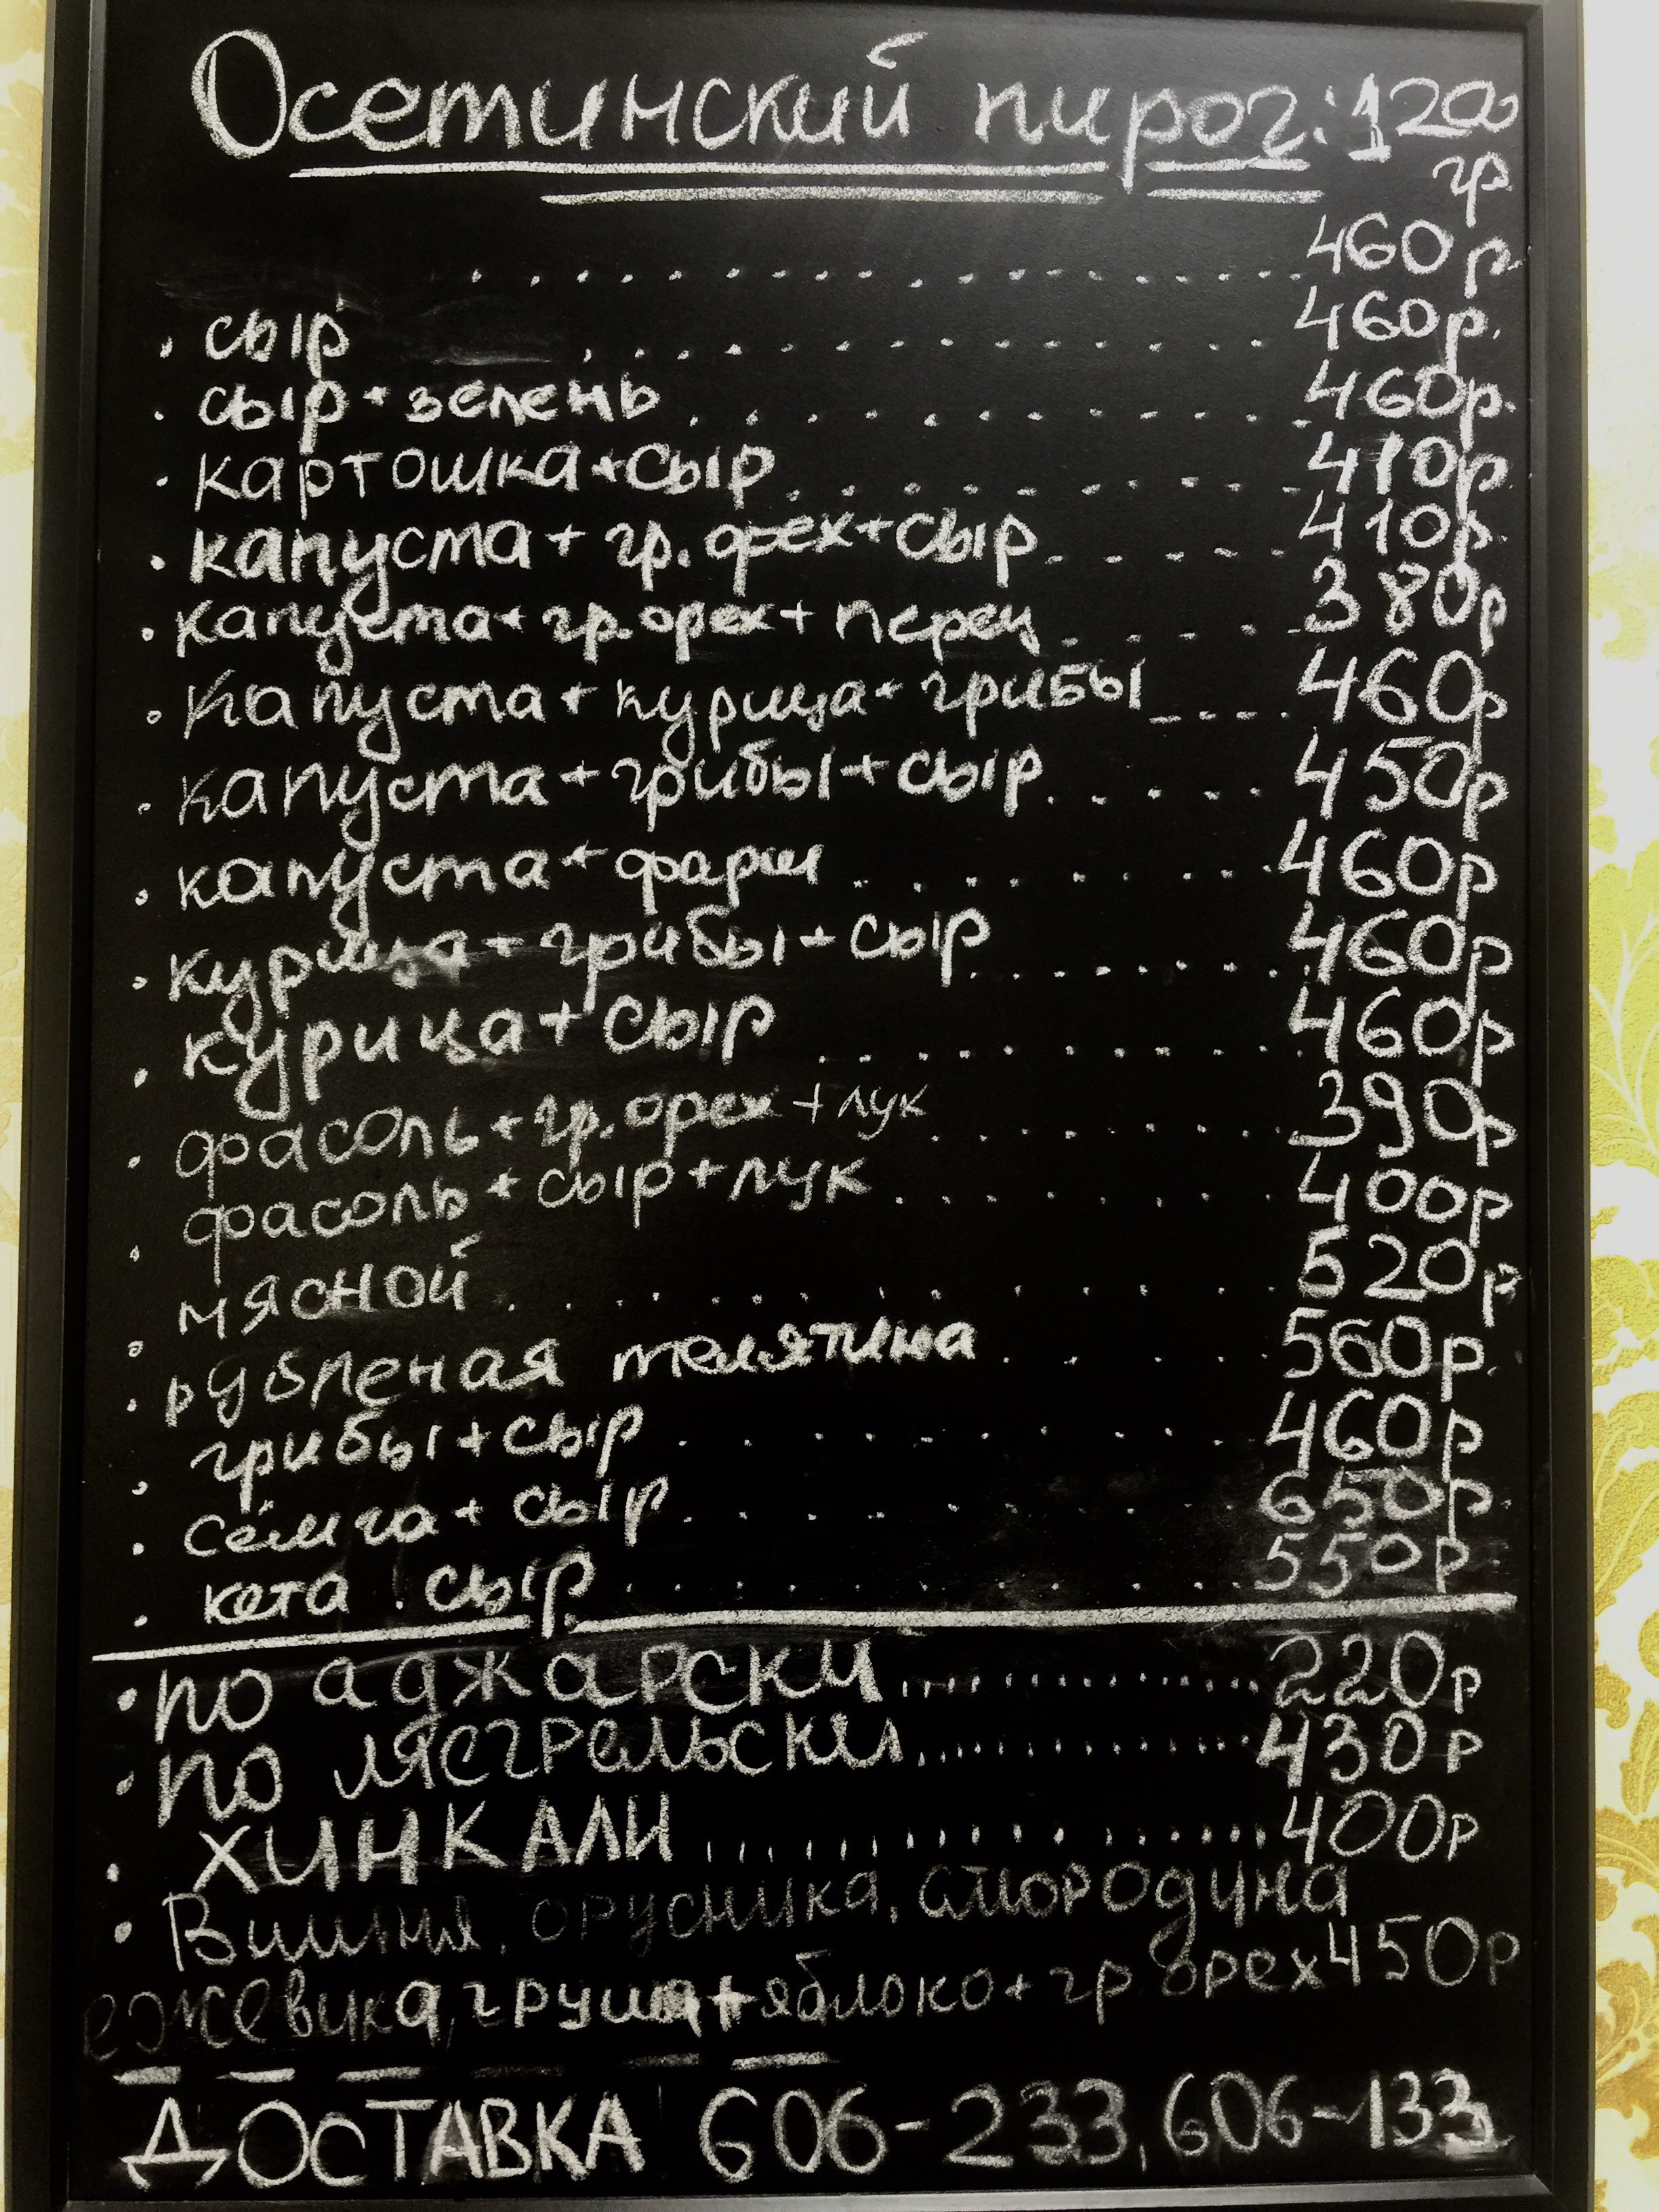 Осетинский пирог: 1200
гр
. . . . . . . . . . . . . . . . 460р.
. сыр . . . . . . . . . . . . 460р.
. сыр+зелень . . . . . . . . . . 460р.
. картошка+сыр . . . . . . . . . 410р
. капуста+гр.орех+сыр . . . . . 410р.
. капуста+гр.орех+перец . . . . 380р
. капуста+курица+грибы . . . . 460р
. капуста+грибы+сыр . . . . . 450р
. капуста+фарш . . . . . . . . 460р
. курица+грибы+сыр . . . . . . . 460р
. курица+сыр . . . . . . . . . . 460р
. фасоль+гр.орех+лук . . . . . . . 390р
. фасоль+сыр+лук . . . . . . . 400р
. мясной . . . . . . . . . . 520р
. рубленая телятина . . . . . 560р.
. грибы+сыр . . . . . . . . . 460р
. сёмга+сыр . . . . . . . . . 650р.
. кета . сыр . . . . . . . . . . 550р.
• по аджарски .............. 220р
• по мегрельски .............. 430р
. ХИНКАЛИ ................ 400р
• Вишня, брусника, смородина
ежевика, груша+яблоко+гр орех 450р
ДОСТАВКА 606-233, 606-133